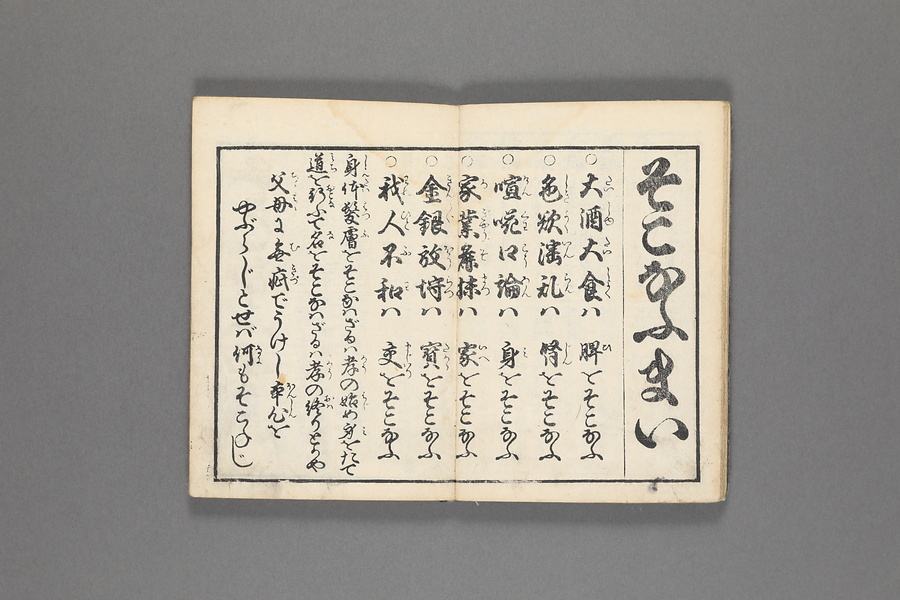 そこなふまい
○大酒大食ハ 脾をそこなふ
○色欲淫乱ハ 腎をそこなふ
○喧嘩口論ハ 身をそこなふ
○家業麁抹ハ 家をそこなふ
○金銀放埒ハ 寳をそこなふ
○我人不和ハ 交をそこなふ
身体髪膚をそこなハざるハ孝の始め身をたて
道を行ふて名をそこなハざるハ孝の終りとかや
父母に無疵でうけし本心を
やぶらじとせバ何もそこねじ